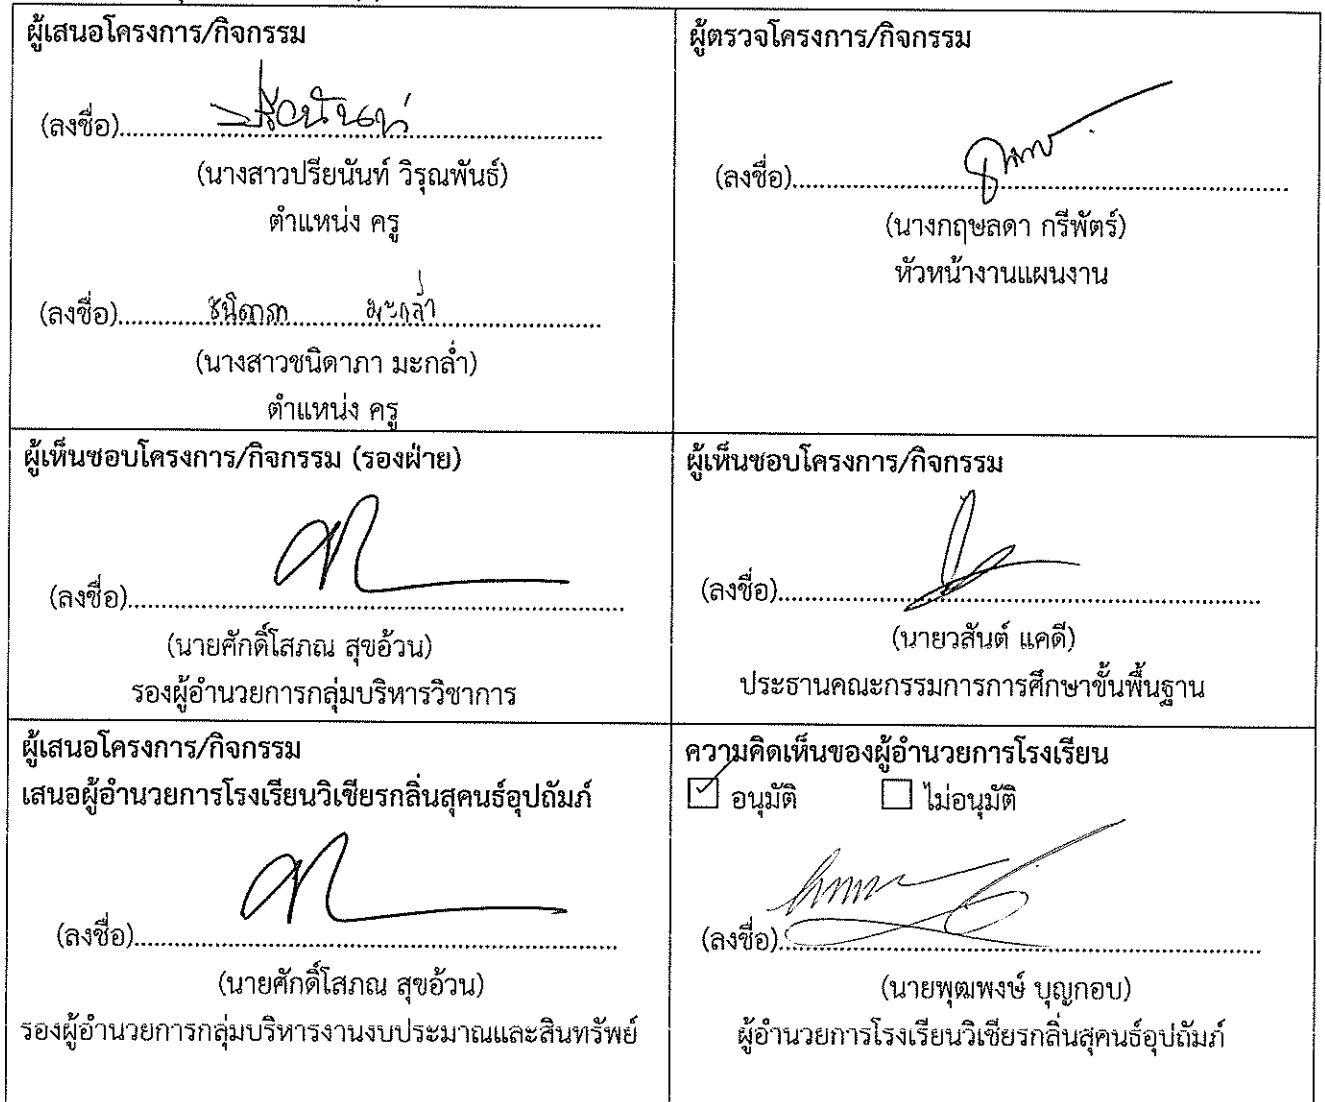 ผู้เสนอโครงการ/กิจกรรม
(ลงชื่อ)
(นางสาวปรียนันท์ วิรุณพันธ์)
ตำแหน่ง ครู
(ลงชื่อ) ชนิดาภา มะกล่ำ
(นางสาวชนิดาภา มะกล่ำ)
ตำแหน่ง ครู
ผู้ตรวจโครงการ/กิจกรรม
(ลงชื่อ)
(นางกฤษลดา กรีพัตร์)
หัวหน้างานแผนงาน
ผู้เห็นชอบโครงการ/กิจกรรม (รองฝ่าย)
(ลงชื่อ)
(นายศักดิ์โสภณ สุขอ้วน)
รองผู้อำนวยการกลุ่มบริหารวิชาการ
ผู้เห็นชอบโครงการ/กิจกรรม
(ลงชื่อ)
(นายวสันต์ แคดี)
ประธานคณะกรรมการการศึกษาขั้นพื้นฐาน
ผู้เสนอโครงการ/กิจกรรม
เสนอผู้อำนวยการโรงเรียนวิเชียรกลิ่นสุคนธ์อุปถัมภ์
(ลงชื่อ)
(นายศักดิ์โสภณ สุขอ้วน)
รองผู้อำนวยการกลุ่มบริหารงานงบประมาณและสินทรัพย์
ความคิดเห็นของผู้อำนวยการโรงเรียน
☑ อนุมัติ ☐ ไม่อนุมัติ
(ลงชื่อ)
(นายพุฒพงษ์ บุญกอบ)
ผู้อำนวยการโรงเรียนวิเชียรกลิ่นสุคนธ์อุปถัมภ์